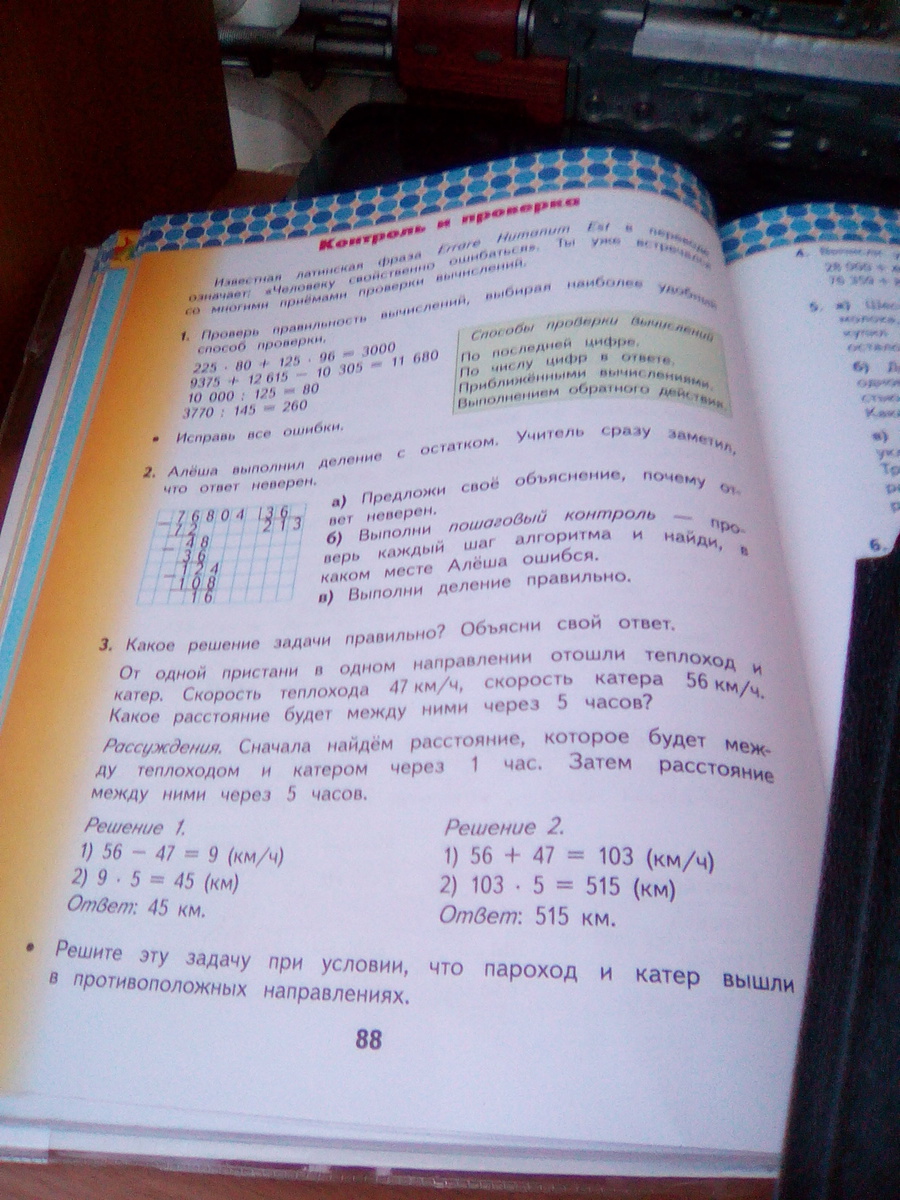 Контроль и проверка
Известная латинская фраза Errare Humanum Est в переводе
означает: «Человеку свойственно ошибаться». Ты уже встречался
со многими приёмами проверки вычислений.
1. Проверь правильность вычислений, выбирая наиболее удобный
способ проверки.
225 · 80 + 125 · 96 = 3000
9375 + 12 615 − 10 305 = 11 680
10 000 : 125 = 80
3770 : 145 = 260
Способы проверки вычислений
По последней цифре.
По числу цифр в ответе.
Приближёнными вычислениями.
Выполнением обратного действия.
• Исправь все ошибки.
2. Алёша выполнил деление с остатком. Учитель сразу заметил,
что ответ неверен.
76804 36
− 72 213
48
− 36
124
− 108
16
а) Предложи своё объяснение, почему от-
вет неверен.
б) Выполни пошаговый контроль — про-
верь каждый шаг алгоритма и найди, в
каком месте Алёша ошибся.
в) Выполни деление правильно.
3. Какое решение задачи правильно? Объясни свой ответ.
От одной пристани в одном направлении отошли теплоход и
катер. Скорость теплохода 47 км/ч, скорость катера 56 км/ч.
Какое расстояние будет между ними через 5 часов?
Рассуждения. Сначала найдём расстояние, которое будет меж-
ду теплоходом и катером через 1 час. Затем расстояние
между ними через 5 часов.
Решение 1.
1) 56 − 47 = 9 (км/ч)
2) 9 · 5 = 45 (км)
Ответ: 45 км.
Решение 2.
1) 56 + 47 = 103 (км/ч)
2) 103 · 5 = 515 (км)
Ответ: 515 км.
• Решите эту задачу при условии, что пароход и катер вышли
в противоположных направлениях.
88
4.
28 000 +
76 359 +
5. а)
молока.
купил
б)
в)
6.